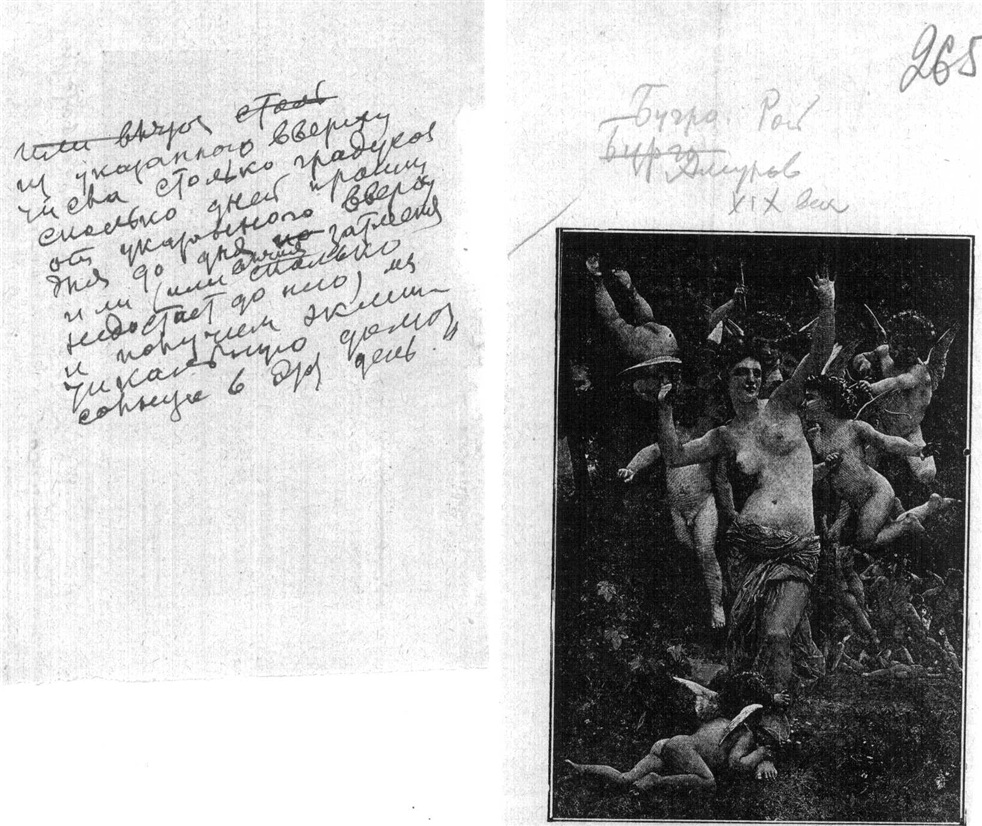 или вычтя столь
из указанного вверху
числа столько градусов
сколько дней прошло
от указанного вверху
дня до дня по затмения
или (или вычтя сколько
недостает до него) из
и получим эклип-
тикальную долготу
солнца в этот день."
265
Бугро. Рой
Бугро
Амуров
XIX век